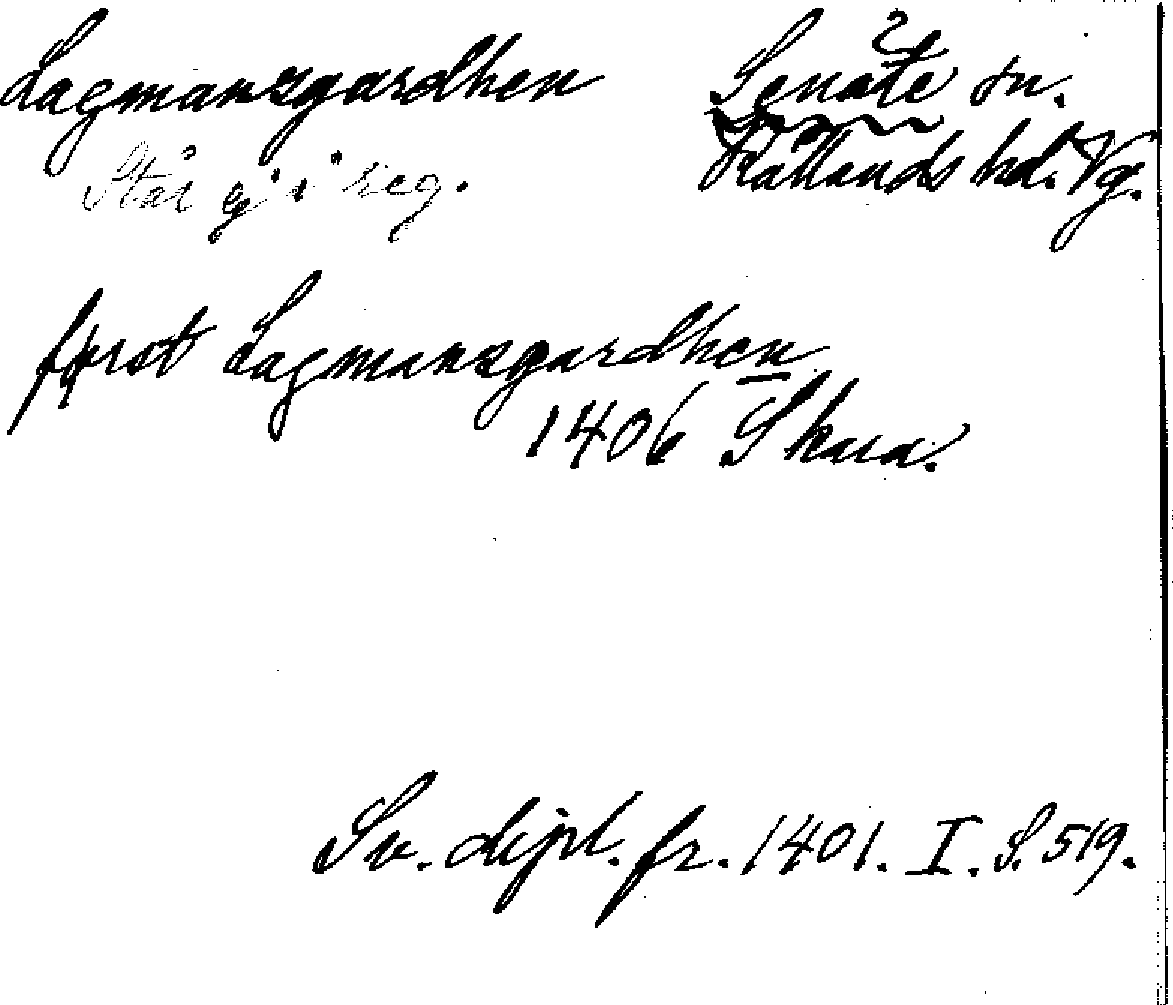 Lagmansgardhen
Står ej i reg.
?
Senäte sn.
Kållands hd. Vg.
først Lagmansgardhen
1406 Skara.
Sv. dipl. fr. 1401. I. S. 519.